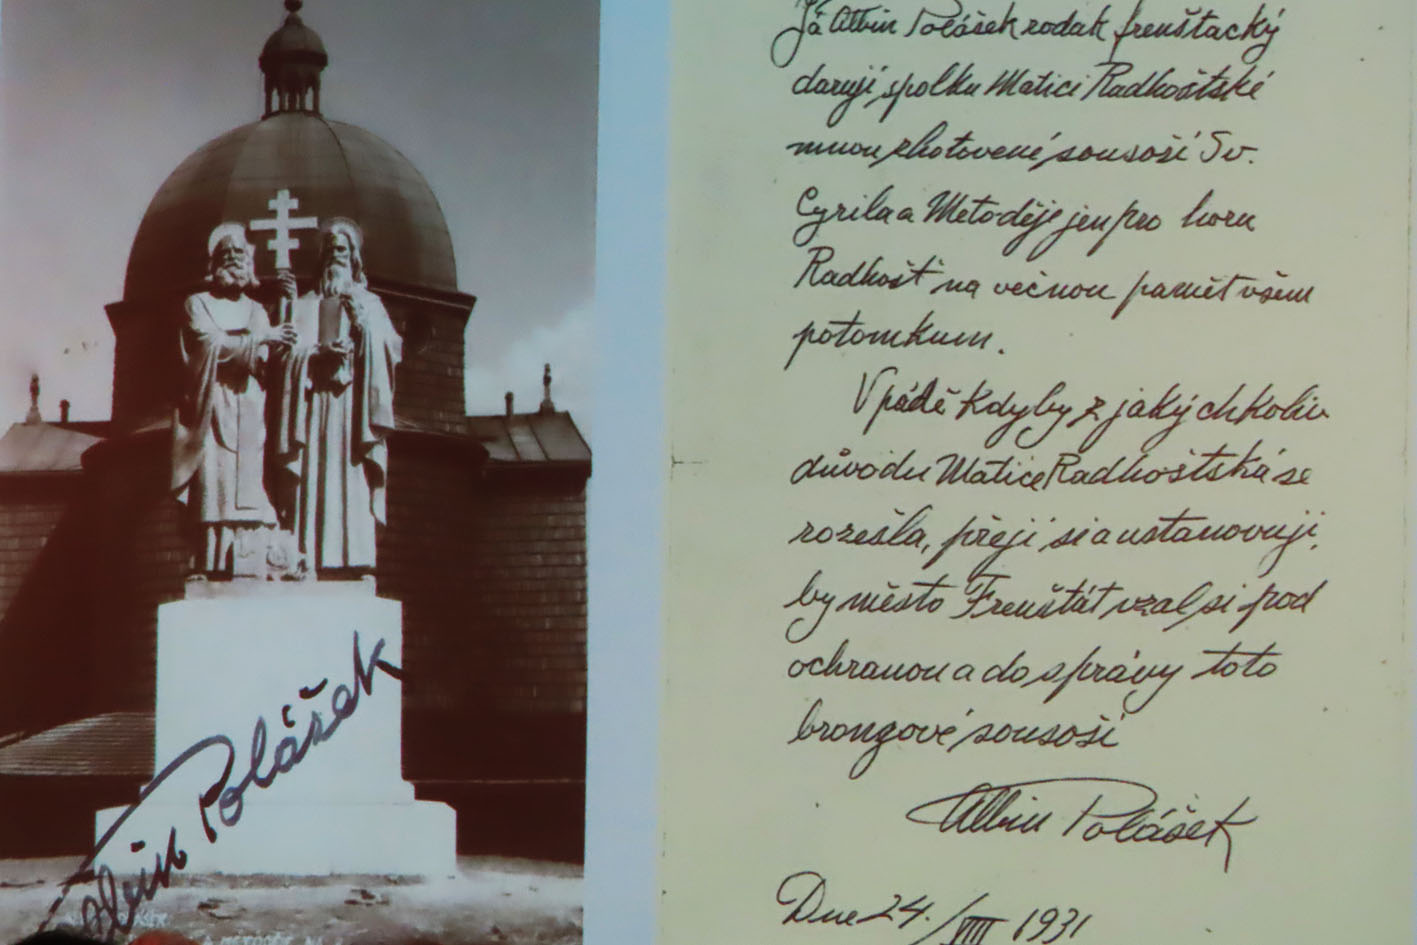 Albin Polášek
Já Albin Polášek rodak frenštacký
daruji spolku Matici Radhoštské
mnou zhotovené sousoší Sv.
Cyrila a Metoděje jen pro horu
Radhošť na věčnou pamět všem
potomkum.
V pádě kdyby z jakýchkoliv
důvodu Matice Radhoštská se
rozešla, přeji si a ustanovuji,
by město Frenštát vzal si pod
ochranou a do správy toto
bronzové sousoší
Albin Polášek
Dne 24./VIII 1931